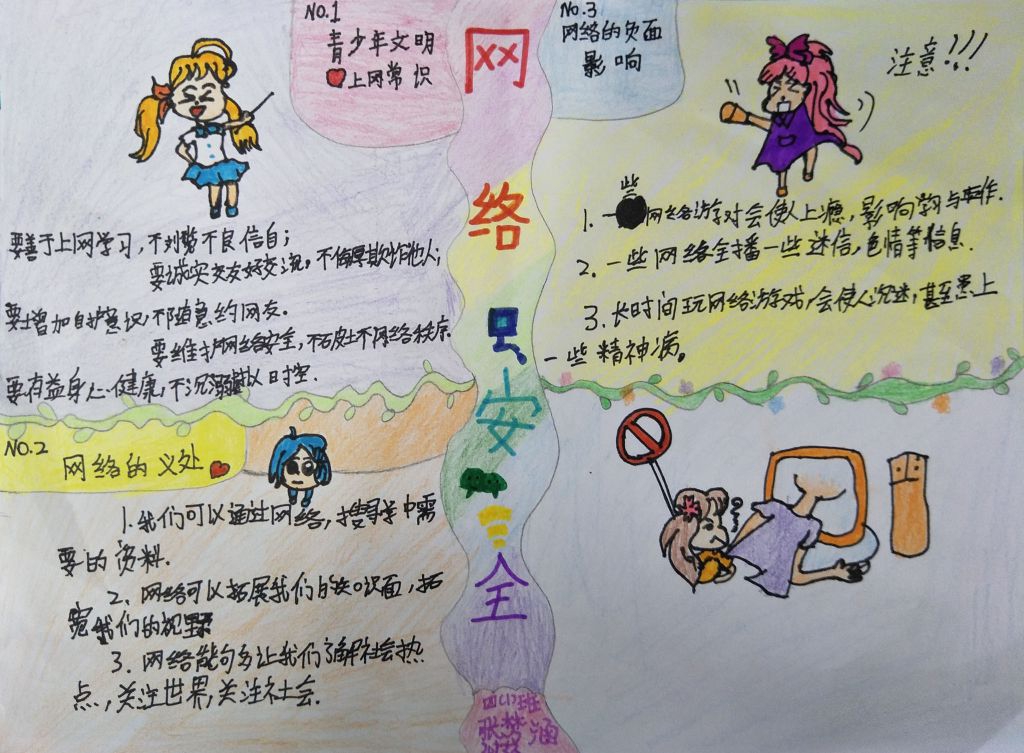 NO.1
青少年文明
上网常识
要善于上网学习,不浏览不良信自;
要诚实交友好交流,不侮辱欺诈他人;
要增加自护意识,不随意约网友.
要维护网络安全,不破坏网络秩序.
要有益身心健康,不沉溺虚拟时空.
NO.2
网络的义处
1.我们可以通过网络,搜寻学中需
要的资料.
2、网络可以拓展我们的知识面,拓
宽我们的视野
3.网络能够多让我们了解社会热
点,关注世界,关注社会.
网
络
安
全
四(1)班
张梦涵
No.3
网络的负面
影响
注意!!!
1.一些网络游对会使人上瘾,影响学与工作.
2.一些网络全播一些迷信,色情等信息.
3.长时间玩网络游戏,会使人沉迷,甚至患上
一些精神病。